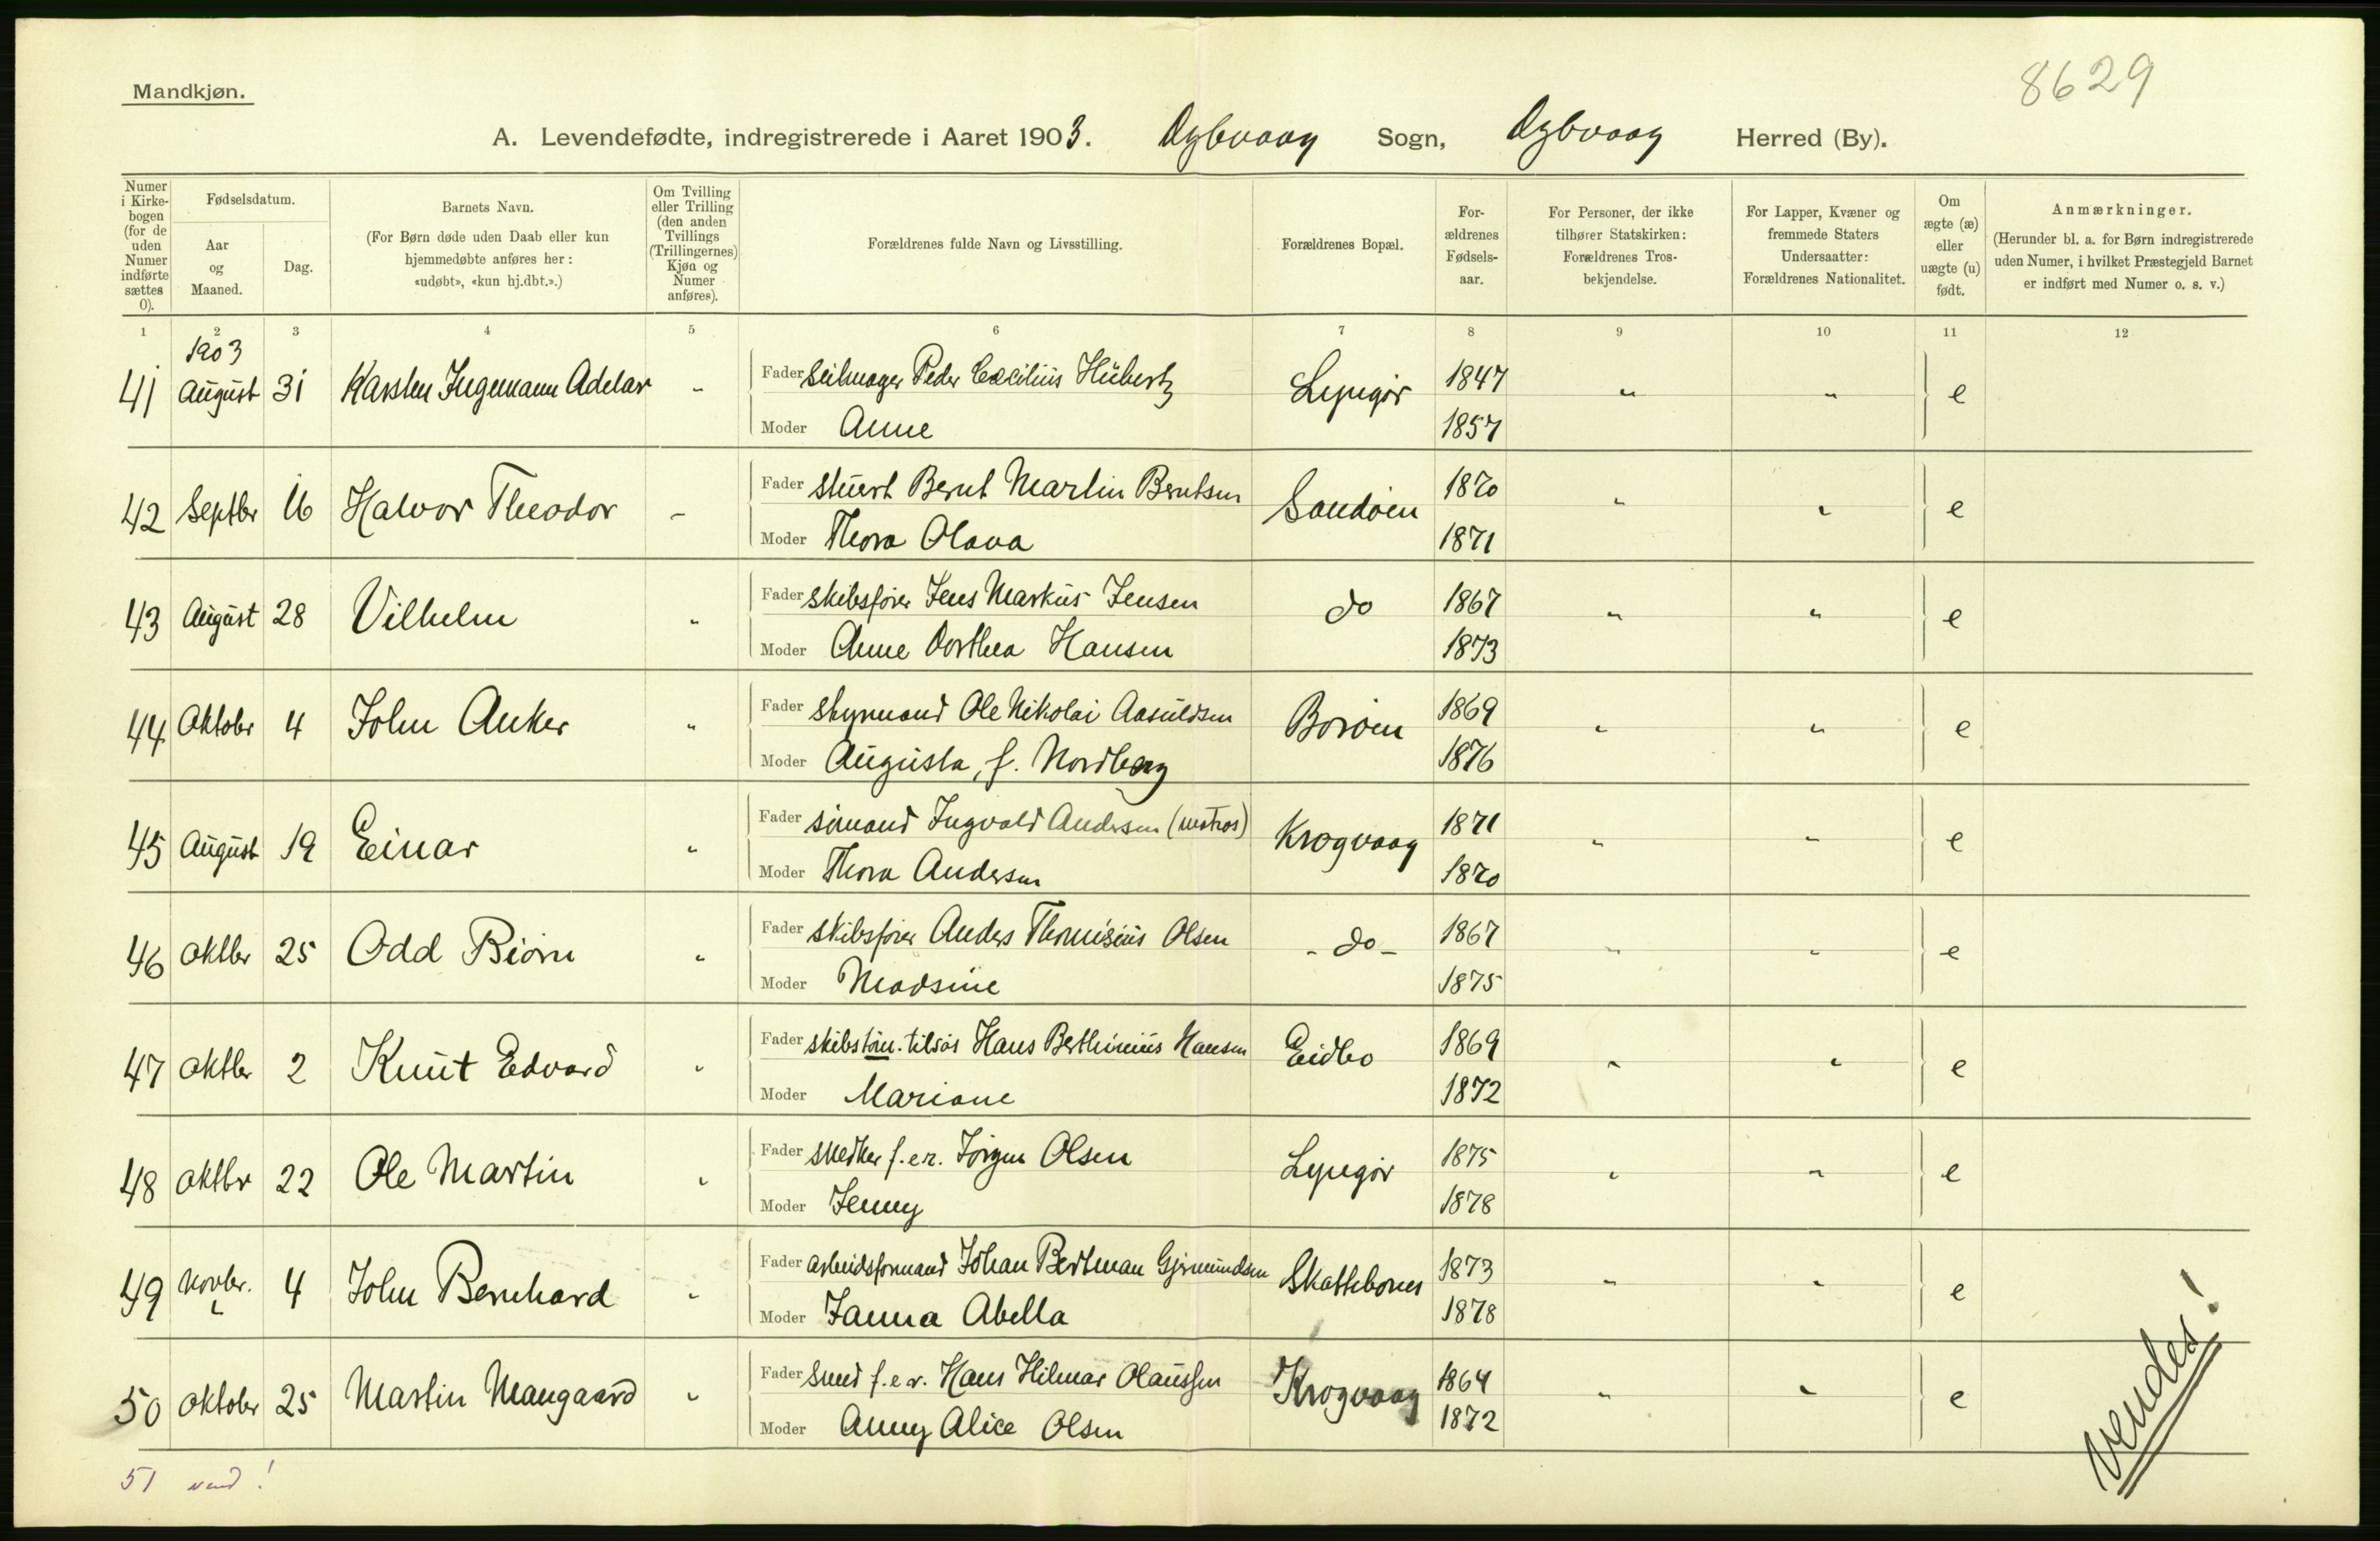 8629
Mandkjøn.
A. Levendefødte, indregistrerede i Aaret 1903. Dybvaag Sogn, Dybvaag Herred (By).
Numer i Kirke-bogen (for de uden Numer indførte sættes 0).
Fødselsdatum.
Aar og Maaned.
Dag.
Barnets Navn.
(For Børn døde uden Daab eller kun hjemmedøbte anføres her: «udøbt», «kun hj.dbt.».)
Om Tvilling eller Trilling (den anden Tvillings (Trillingernes) Kjøn og Numer anføres).
Forældrenes fulde Navn og Livsstilling.
Forældrenes Bopæl.
For-ældrenes Fødsels-aar.
For Personer, der ikke tilhører Statskirken: Forældrenes Tros-bekjendelse.
For Lapper, Kvæner og fremmede Staters Undersaatter: Forældrenes Nationalitet.
Om ægte (æ) eller uægte (u) født.
Anmærkninger.
(Herunder bl. a. for Børn indregistrerede uden Numer, i hvilket Præstegjeld Barnet er indført med Numer o. s. v.)
1 2 3 4 5 6 7 8 9 10 11 12
1903
41 August 31 Karsten Ingemann Adelar - Fader Seilmager Peder Cæcilius Hübertz Lyngør 1847 " " e
Moder Anne 1857
42 Septbr 16 Halvor Theodor - Fader Stuert Bernt Martin Berntsen Sandøen 1870 " " e
Moder Thora Olava 1871
43 August 28 Vilhelm " Fader Skibsfører Jens Markus Jensen do 1867 " " e
Moder Anne Dorthea Hansen 1873
44 Oktober 4 John Anker " Fader Styrmand Ole Nikolai Aasuldsen Borøen 1869 " " e
Moder Augusta, f. Nordberg 1876
45 August 19 Einar " Fader sømand Ingvald Andersen (matros) Krogvaag 1871 " " e
Moder Thora Andersen 1870
46 Oktbr 25 Odd Biørn " Fader Skibsfører Anders Thomsius Olsen - do - 1867 " " e
Moder Madsine 1875
47 Oktbr 2 Knut Edvard " Fader skibstøm. tilsøs Hans Berthinius Hansen Eidbo 1869 " " e
Moder Mariane 1872
48 Oktbr 22 Ole Martin " Fader snedker f.e.r. Jørgen Olsen Lyngør 1875 " " e
Moder Jenny 1878
49 Novbr. 4 John Bernhard " Fader Arbeidsformand Johan Bertman Gjermundsen Skattebones 1873 " " e
Moder Janna Abella 1878
50 Oktober 25 Martin Maugaard " Fader Smed f.e.r. Hans Hilmar Olaussen Krogvaag 1864 " " e
Moder Anny Alice Olsen 1872
Vendes!
51 vend!